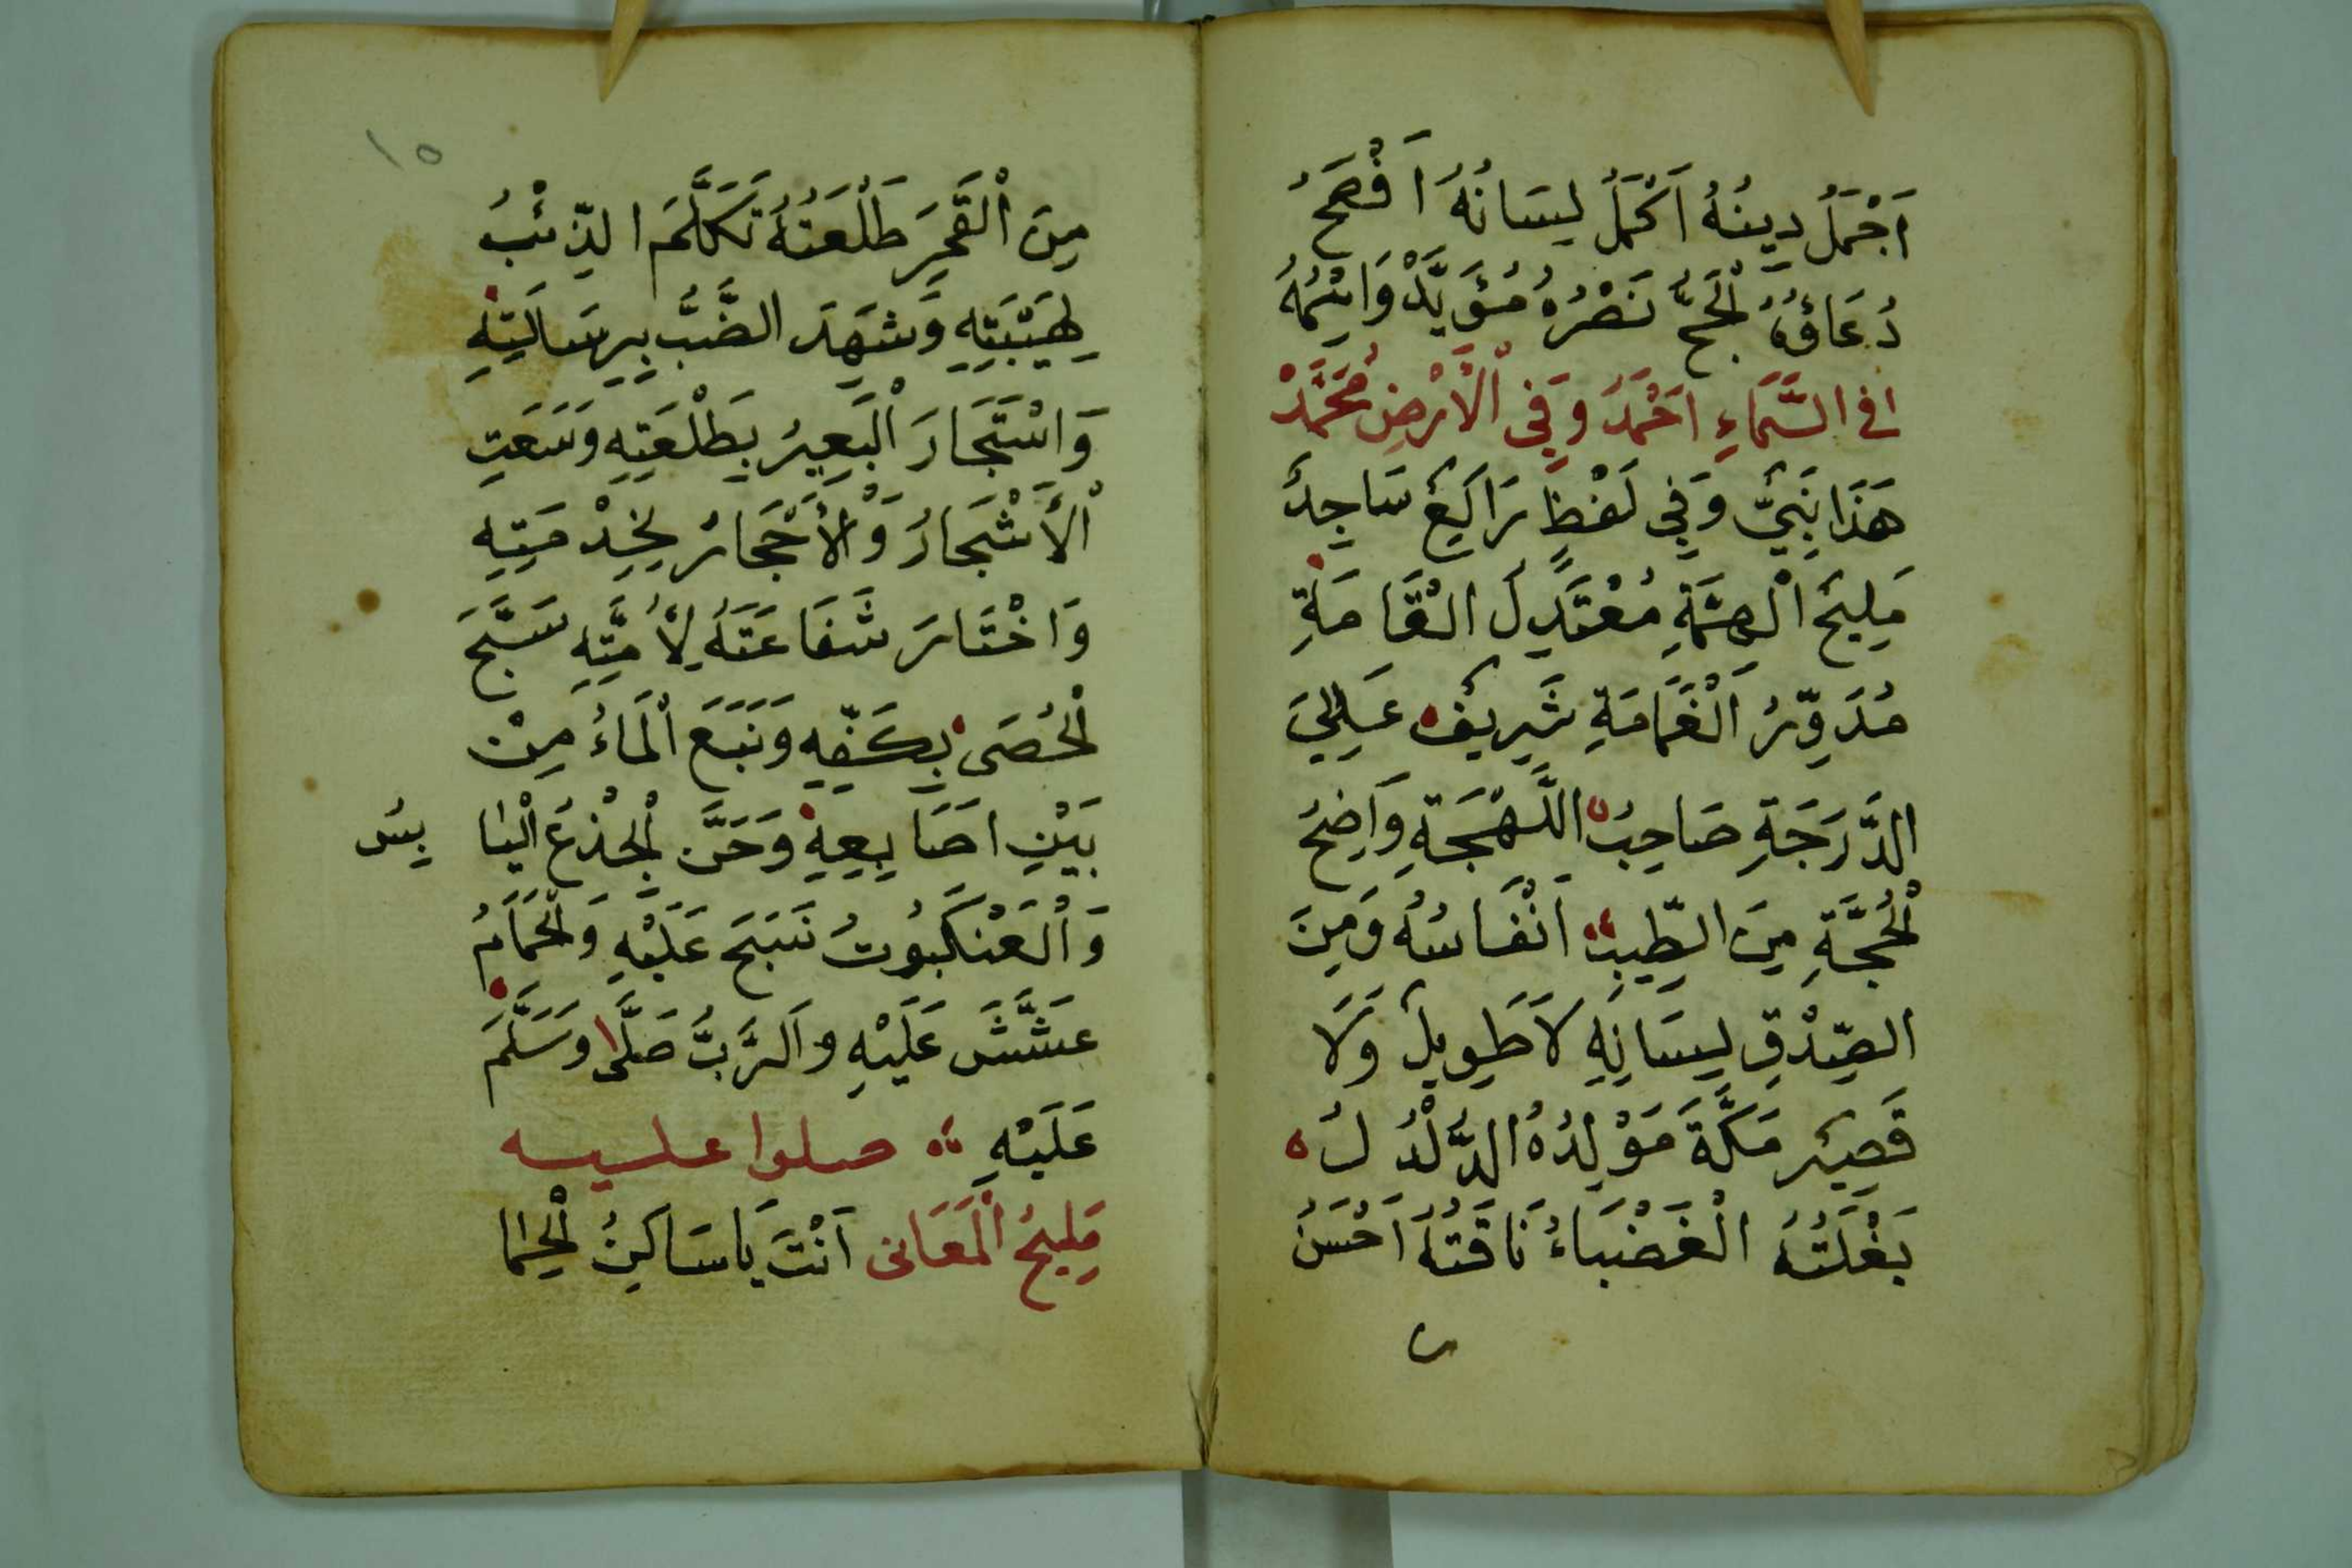 اَجْمَلُ دِينُهُ اَكْمَلُ لِسَانُهُ اَفْصَحُ
دُعَاؤُهُ اَنْجَحُ نَصْرُهُ مُؤَيَّدْ وَاسْمُهُ
فى السَّمَاءِ احْمَدُ وَفِى الْاَرْضِ مُحَمَّدْ
هَذَا نَبِىٌّ وَفِى لَفْظٍ رَاكِعٌ سَاجِدٌ
مَلِيحُ الْهِمَّةِ مُعْتَدِلُ الْقَامَةِ
مُدَوِّرُ الْغَمَامَةِ شَرِيفٌ عَلِىُّ
الدَّرَجَةِ صَاحِبُ اللَّهْجَةِ وَاضِحُ
الْحُجَّةِ مِنَ الطِّيبِ اَنْفَاسُهُ وَمِنَ
الصِّدْقِ لِسَانِهِ لاَ طَوِيلٌ وَلَا
قَصِيرٌ مَكَّةَ مَوْلِدُهُ الدُّلْدُلُ
بَغْلَتُهُ الْغَضْبَاءُ نَاقَتُهُ اَحْسَنُ
١٥
مِنَ الْقَمَرِ طَلْعَتُهُ تَكَلَّمَ الذِّئْبُ
لِهَيْبَتِهِ وَشَهِدَ الضَّبُّ بِرِسَالَتِهِ
وَاسْتَجَارَ الْبَعِيرُ بِطَلْعَتِهِ وَسَعَتِ
الْأَشْجَارُ وَالْأَحْجَارُ لِخِدْمَتِهِ
وَاخْتَارَ شَفَاعَتَهُ لِأُمَّتِهِ سَبَّحَ
الْحَصَى بِكَفِّهِ وَنَبَعَ الْمَاءُ مِنْ
بَيْنِ اصَابِعِهِ وَحَنَّ الْجِذْعُ الْيَا بِسُ
وَالْعَنْكَبُوتُ نَسَجَ عَلَيْهِ وَالْحَمَامُ
عَشَّشَ عَلَيْهِ وَالرَّبُّ صَلَّى وَسَلَّمَ
عَلَيْهِ صلوا عليه
مَلِيحُ الْمَعَانى اَنْتَ يَا سَاكِنُ الْحِمَا